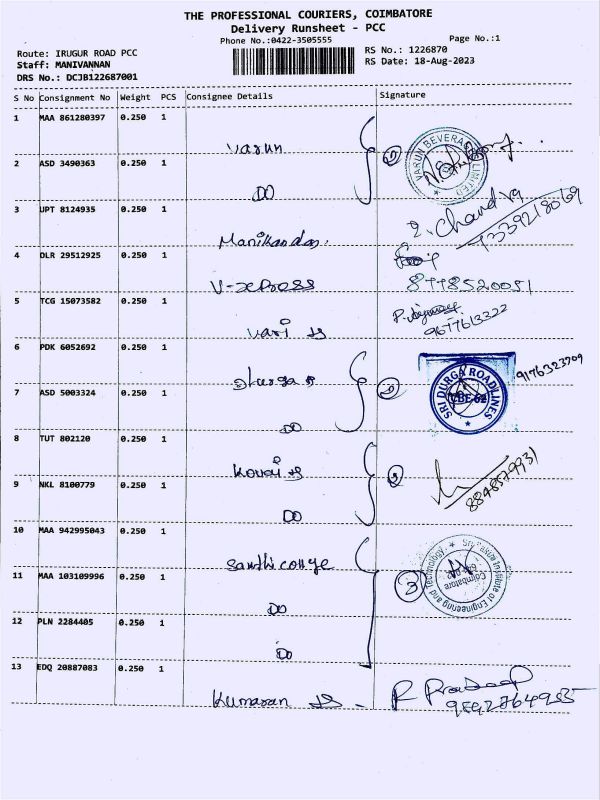 THE PROFESSIONAL COURIERS, COIMBATORE
Delivery Runsheet - PCC
Phone No.:0422-3505555
Page No.:1
Route: IRUGUR ROAD PCC
RS No.: 1226870
Staff: MANIVANNAN
RS Date: 18-Aug-2023
DRS No.: DCJB122687001
S No Consignment No Weight PCS Consignee Details Signature
1 MAA 861280397 0.250 1
Varun
2 ASD 3490363 0.250 1
VARUN BEVERAGES LIMITED
DO
3 UPT 8124935 0.250 1
Manikandan.
4 DLR 29512925 0.250 1
V-xpress
8778520051
5 TCG 15073582 0.250 1
Vari
9677613322
6 PDK 6052692 0.250 1
Dhurga
9176323709
7 ASD 5003324 0.250 1
SRI DURGA ROADLINES
CBE-62
DO
8 TUT 802120 0.250 1
Kovai
9 NKL 8100779 0.250 1
DO
10 MAA 942995043 0.250 1
11 MAA 103109996 0.250 1
Institute of Engineering and Technology
Coimbatore
3
DO
12 PLN 2284405 0.250 1
DO
13 EDQ 20887083 0.250 1
Kumaran